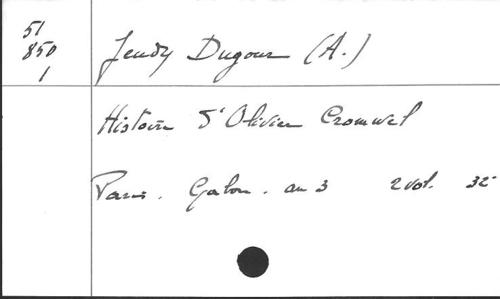 51
850
1
Jeudy Dugour (A.)
Histoire d'Olivier Cromwel
Paris. an 3 2 vol. 32